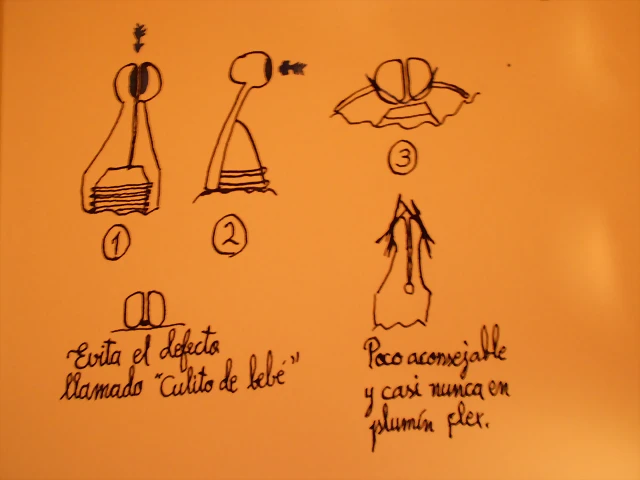 1
2
3
Evita el defecto
llamado "Culito de bebé"
Poco aconsejable
y casi nunca en
plumín flex.